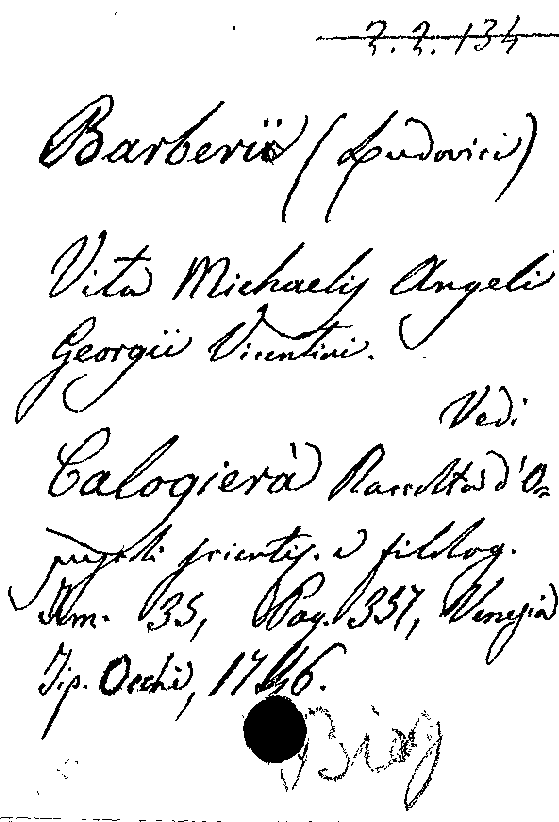 2.2.134
Barberii (Ludovici)
Vita Michaelis Angeli
Georgii Vicentini.
Vedi
Calogierà Raccolta d'O=
puscoli scientif. e filolog.
Tom. 35, Pag. 357, Venezia
Tip. Occhi, 1746.
Biog